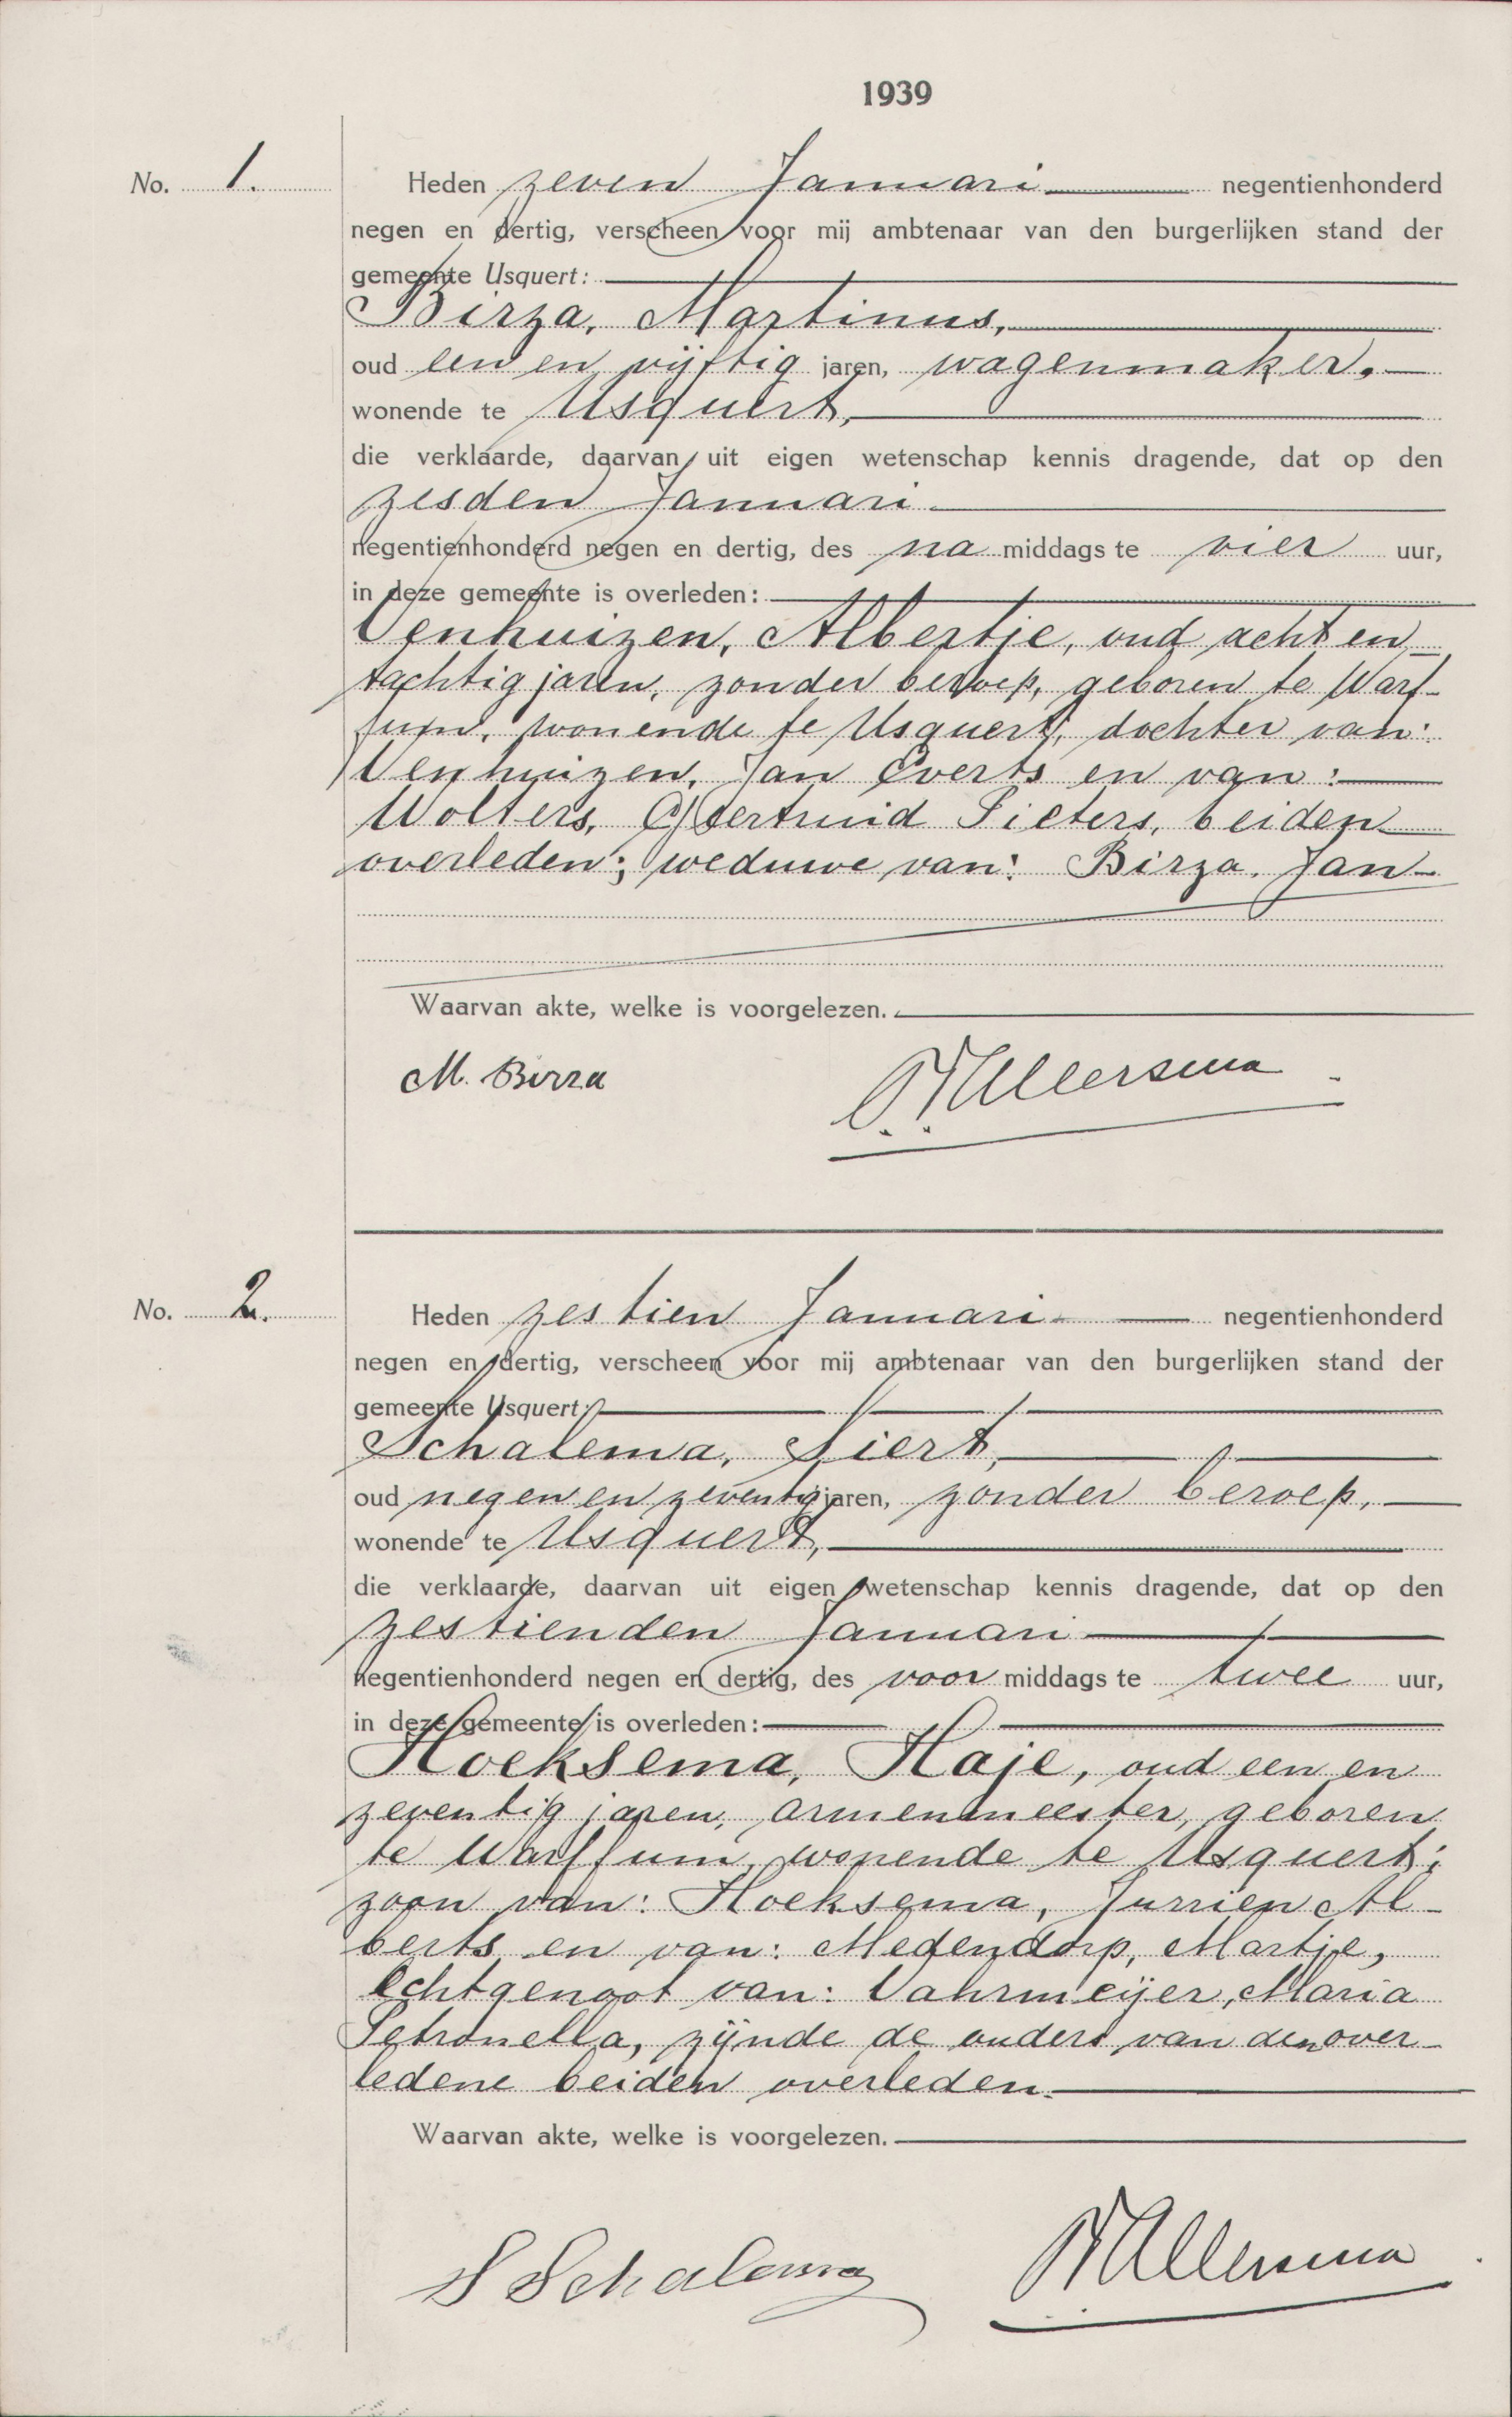 1939
No. 1.
Heden zeven Januari negentienhonderd
negen en dertig, verscheen voor mij ambtenaar van den burgerlijken stand der
gemeente Usquert:
Birza, Martinus,
oud een en vijftig jaren, wagenmaker,
wonende te Usquert,
die verklaarde, daarvan uit eigen wetenschap kennis dragende, dat op den
zesden Januari
negentienhonderd negen en dertig, des na middags te vier uur,
in deze gemeente is overleden:
Venhuizen, Albertje, oud acht en
tachtig jaren, zonder beroep, geboren te Warf-
fum, wonende te Usquert, dochter van:
Venhuizen, Jan Everts en van:
Wolters, Geertruid Pieters, beiden
overleden; weduwe van: Birza, Jan
Waarvan akte, welke is voorgelezen.
M. Birza
Allersma
No. 2.
Heden zestien Januari negentienhonderd
negen en dertig, verscheen voor mij ambtenaar van den burgerlijken stand der
gemeente Usquert:
Schalema, Siert,
oud negen en zeventig jaren, zonder beroep,
wonende te Usquert,
die verklaarde, daarvan uit eigen wetenschap kennis dragende, dat op den
zestienden Januari
negentienhonderd negen en dertig, des voor middags te twee uur,
in deze gemeente is overleden:
Hoeksema, Haje, oud een en
zeventig jaren, armenmeester, geboren
te Warffum, wonende te Usquert;
zoon van: Hoeksema, Jurrien Al-
berts en van: Medendorp, Martje,
echtgenoot van: Vahrmeijer, Maria
Petronella, zijnde de ouders van den over-
ledene beiden overleden.
Waarvan akte, welke is voorgelezen.
S Schalema
Allersma